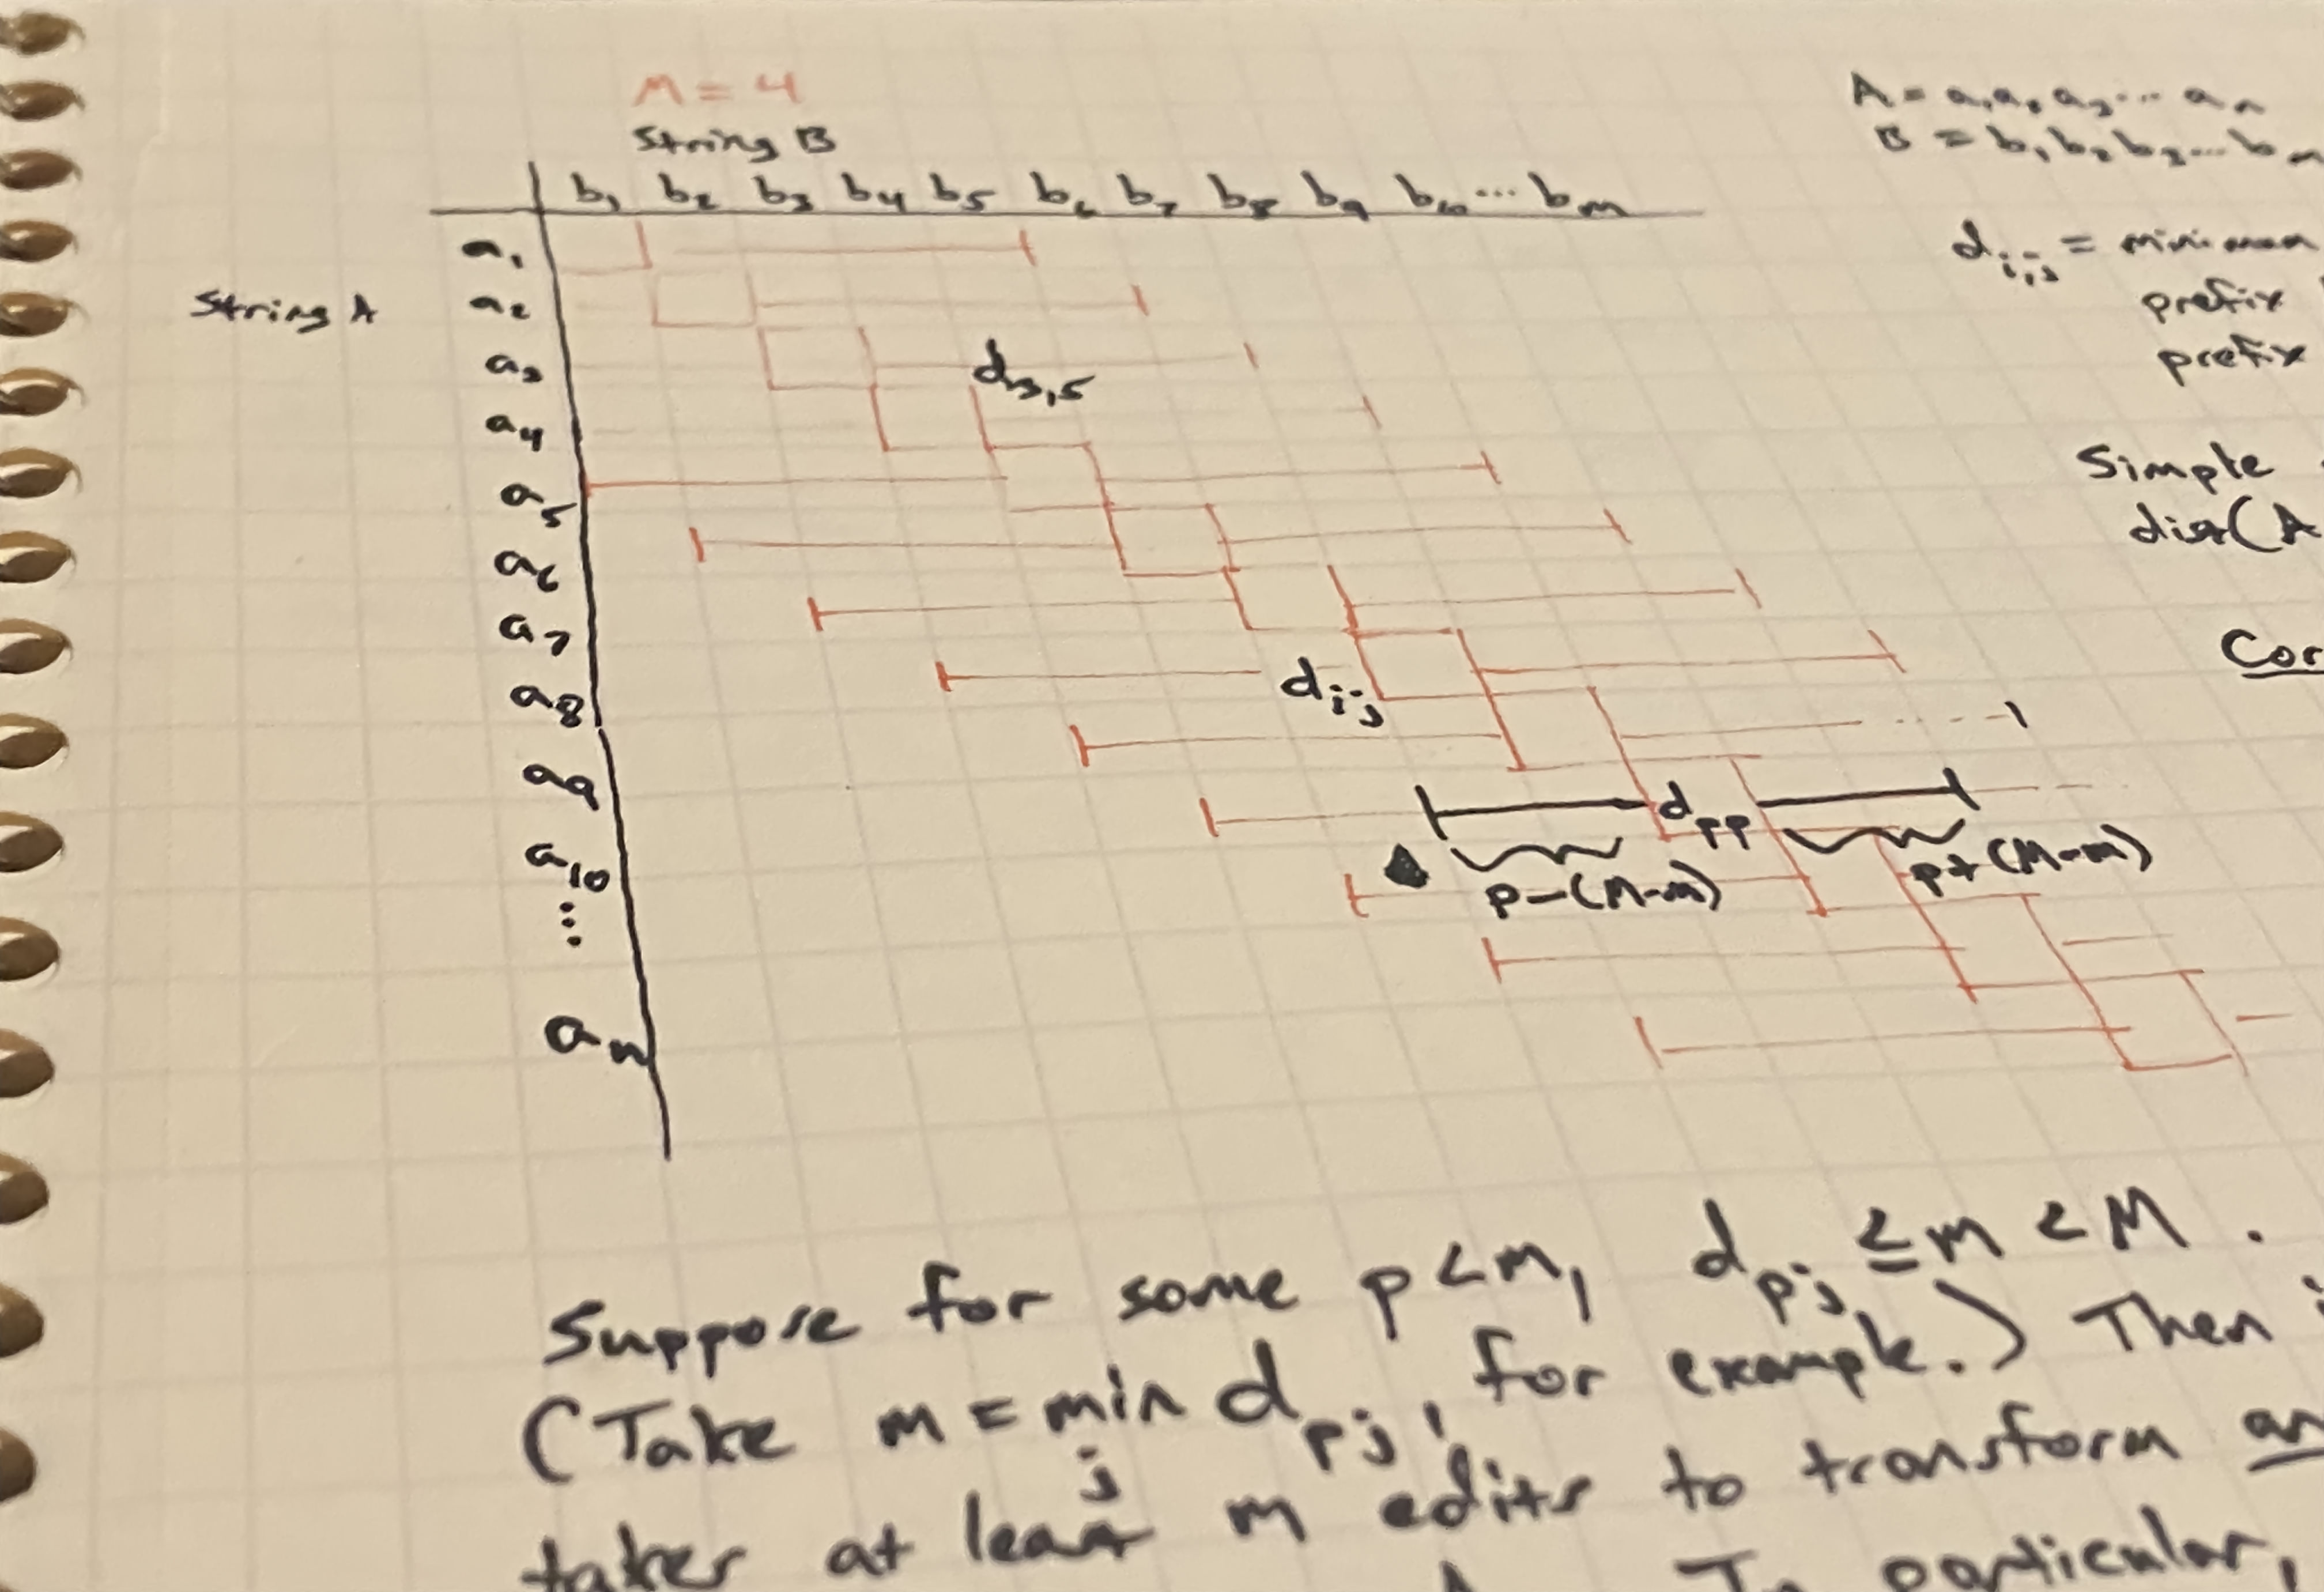 M = 4
String B
b₁ b₂ b₃ b₄ b₅ b₆ b₇ b₈ b₉ b₁₀ ... bₘ
A = a₁a₂a₃...aₙ
B = b₁b₂b₃...bₘ
String A
a₁
a₂
a₃
a₄
a₅
a₆
a₇
a₈
a₉
a₁₀
⋮
aₙ
d₃,₅
dᵢⱼ
dₚₚ
p-(M-m)
p+(M-m)
dᵢ,ⱼ = minimum
prefix
prefix
Simple
dist(A
Cor
Suppose for some p<m, dₚⱼ ≤ m < M.
(Take m = min dₚⱼ, for example.) Then
j
takes at least m edits to transform an
In particular,